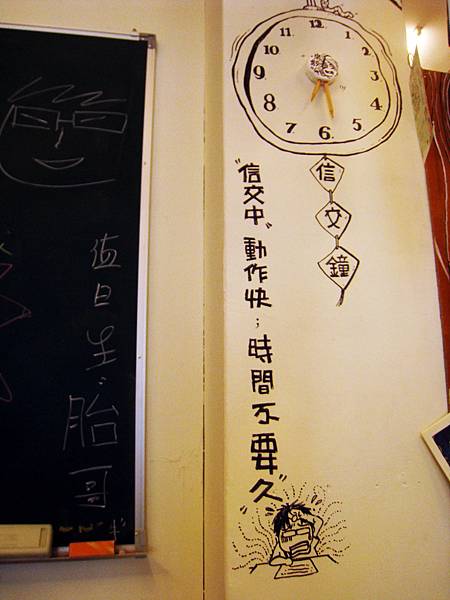 值日生:胎哥
12
11 1
10 2
9 3
8 4
7 5
6
信交鐘
"信交中"動作快；時間不要"久"